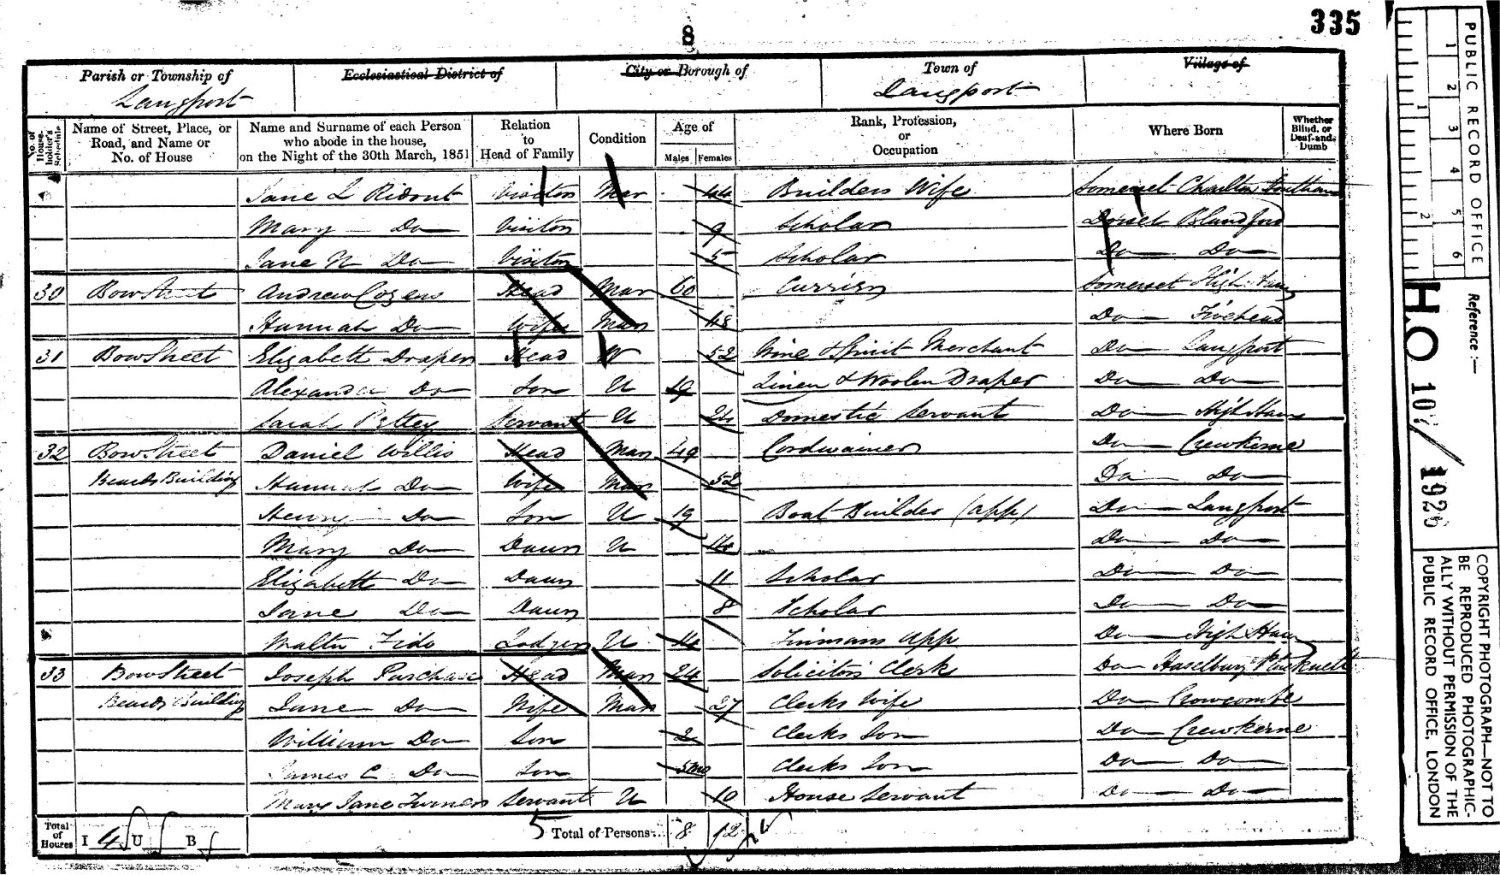 335
8
Parish or Township of Ecclesiastical District of City or Borough of Town of Village of
Langport Langport
No. of Householder's Schedule Name of Street, Place, or Road, and Name or No. of House Name and Surname of each Person who abode in the house, on the Night of the 30th March, 1851 Relation to Head of Family Condition Age of Males Females Rank, Profession, or Occupation Where Born Whether Blind, or Deaf-and-Dumb
Jane L Ridout Visitor Mar 44 Builders Wife Somerset Charlton
Mary Do Visitor 9 Scholar Dorset Blandford
Jane N Do Visitor 5 Scholar Do Do
30 Bow Street Andrew Cozens Head Mar 60 Currier Somerset High Ham
Hannah Do Wife Mar 48 Do Fivehead
31 Bow Street Elizabeth Draper Head W 52 Wine & Spirit Merchant Do Langport
Alexander Do Son U 19 Linen & Woolen Draper Do Do
Sarah Servant U 24 Domestic Servant Do High Ham
32 Bow Street Daniel Willis Head Mar 49 Cordwainer Do Crewkerne
Beards Building Hannah Do Wife Mar 52 Do Do
Henry Do Son U 19 Boat Builder (app) Do Langport
Mary Do Daur U 14 Do Do
Elizabeth Do Daur 11 Scholar Do Do
Jane Do Daur 8 Scholar Do Do
Walter Fido Lodger U 14 app Do High Ham
33 Bow Street Joseph Purchase Head Mar 24 Solicitors Clerk Do Haselbury Plucknett
Beards Building Jane Do Wife Mar 27 Clerks Wife Do Crowcombe
William Do Son 2 Clerks Son Do Crewkerne
James C Do Son 5mo Clerks Son Do Do
Mary Jane Turner Servant U 10 House Servant Do Do
Total of Houses I 4 U B 5 Total of Persons 8 12
PUBLIC RECORD OFFICE
1 2 3 4 5 6
1 2
Reference :—
H.O 107/1926
COPYRIGHT PHOTOGRAPH—NOT TO
BE REPRODUCED PHOTOGRAPHIC-
ALLY WITHOUT PERMISSION OF THE
PUBLIC RECORD OFFICE, LONDON